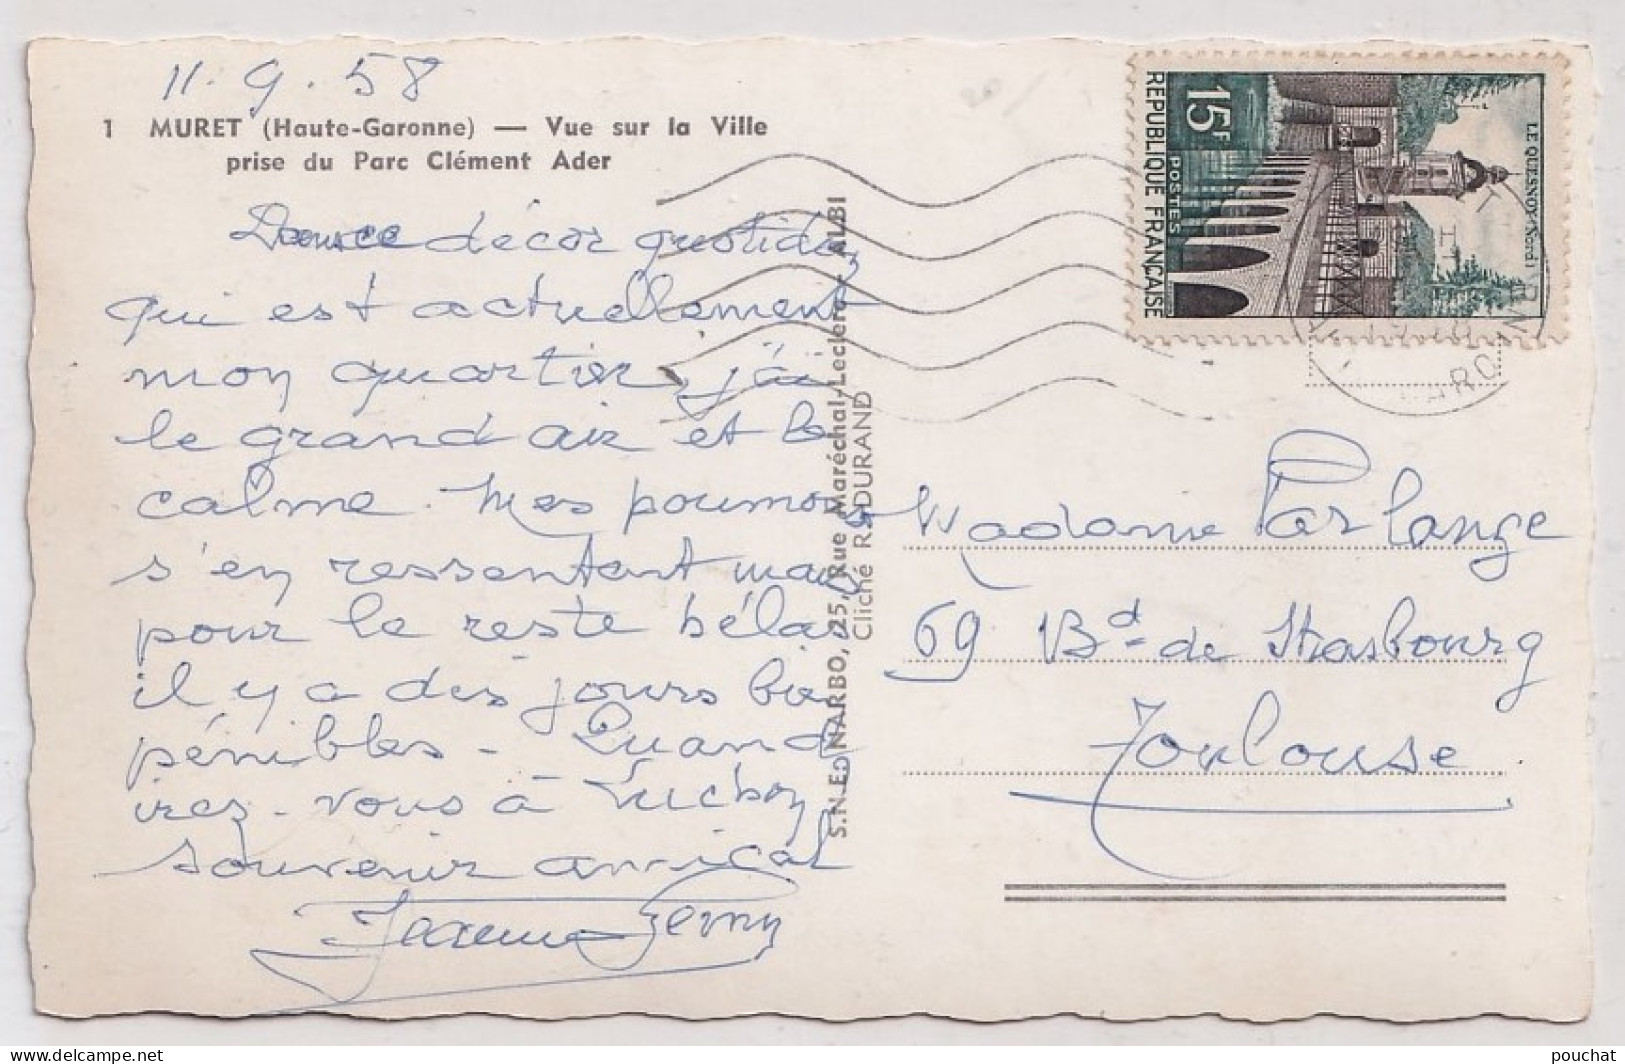 11.9.58
1 MURET (Haute-Garonne) — Vue sur la Ville
prise du Parc Clément Ader
décor quotidien
qui est actuellement
mon quartier, j'ai
le grand air et le
calme. Mes poumons
s'en ressentent mais
pour le reste hélas
il y a des jours bien
pénibles - Quand
irez-vous à Luchon
souvenir amical
Jeanne
S.N.E. NARBO, 25, Rue Maréchal-Leclerc - ALBI
Cliché R. DURAND
REPUBLIQUE FRANÇAISE
15F
POSTES
LE QUESNOY (Nord)
Madame Parlange
69 Bd de Strasbourg
Toulouse
pouchat